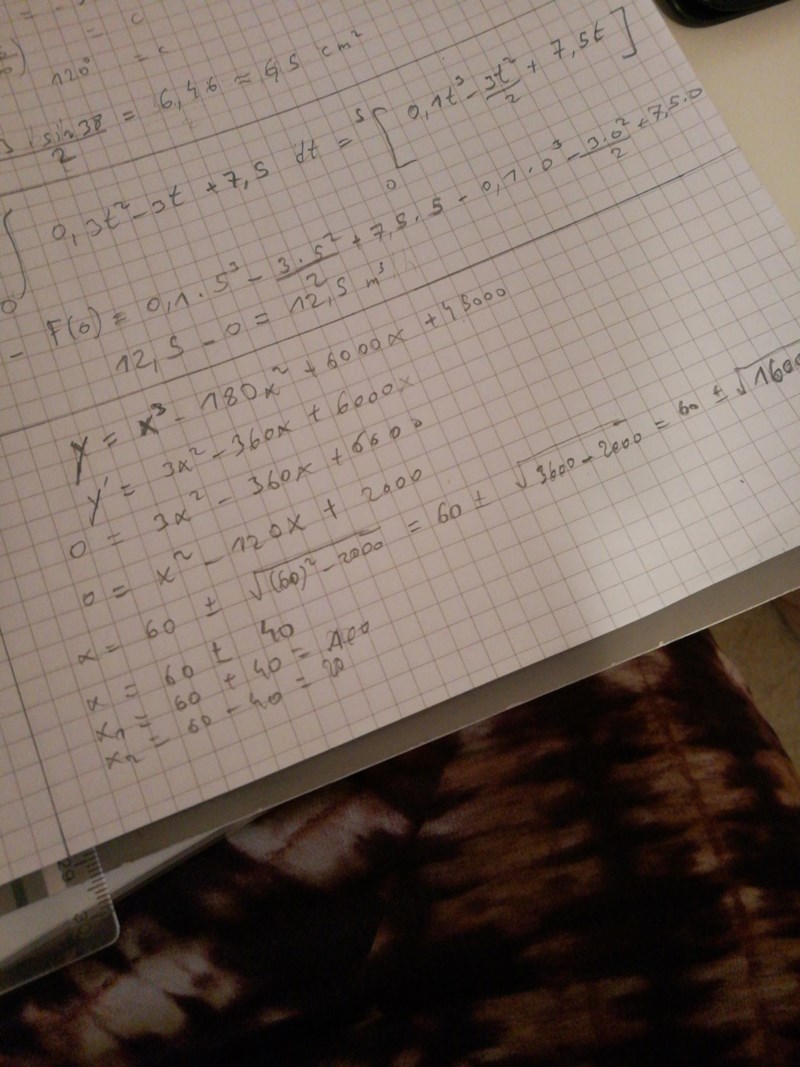 = c
120° = c
sin 38 / 2 = 6,46 ≈ 6,5 cm²
∫ 0 0,3t² - 3t + 7,5 dt = 5 [ 0 0,1t³ - 3t²/2 + 7,5t ]
- F(0) = 0,1 · 5³ - 3·5²/2 + 7,5 · 5 - 0,1 · 0³ - 3·0²/2 + 7,5·0
12,5 - 0 = 12,5 m³
y = x³ - 180x² + 6000x + 45000
y' = 3x² - 360x + 6000x
0 = 3x² - 360x + 6000
0 = x² - 120x + 2000
x = 60 ± √(60)² - 2000 = 60 ± √3600 - 2000 = 60 ± √1600
x = 60 ± 40
x₁ = 60 + 40 = 100
x₂ = 60 - 40 = 20
29
30